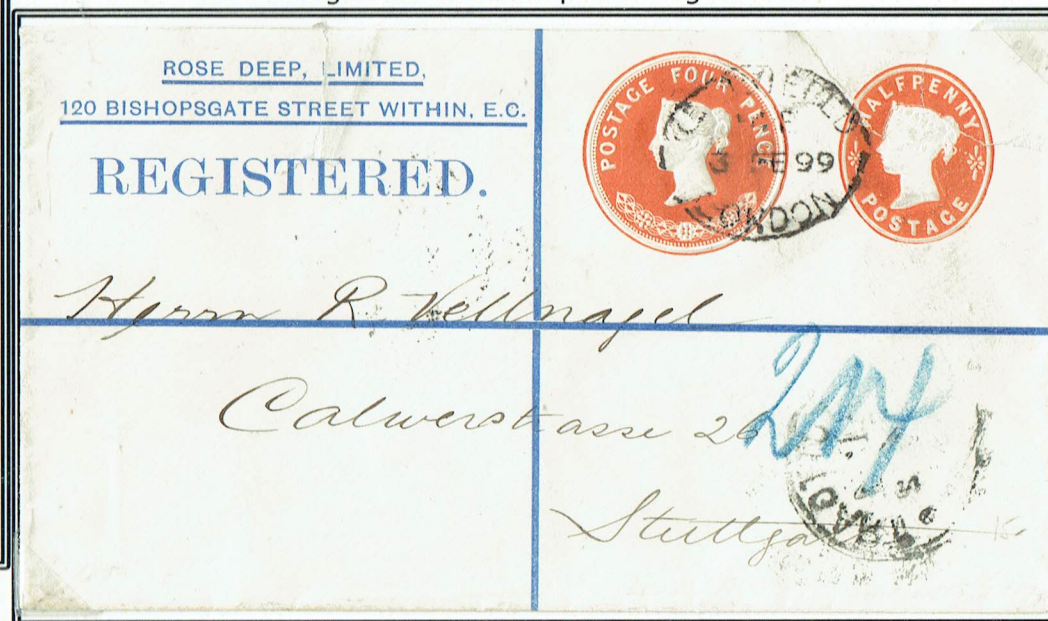 ROSE DEEP, LIMITED,
120 BISHOPSGATE STREET WITHIN, E.C.
REGISTERED.
POSTAGE FOUR PENCE
HALFPENNY
POSTAGE
99
LONDON
Herrn R. Vellnagel
Calwerstrasse 26
217
Stuttgart